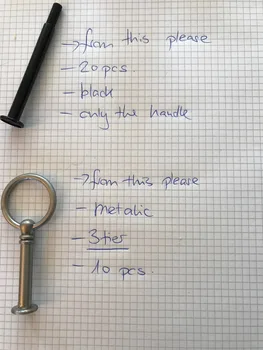 → from this please
- 20 pcs.
- black
- only the handle
→ from this please
- metalic
- 3tier
- 10 pcs.